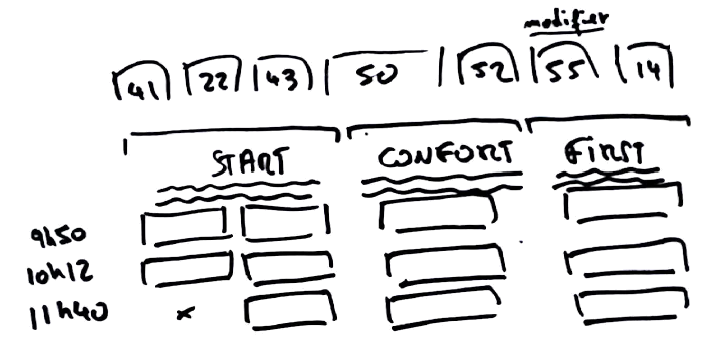 modifier
41 22 43 50 52 55 14
START CONFORT FIRST
9h50
10h12
11h40 x